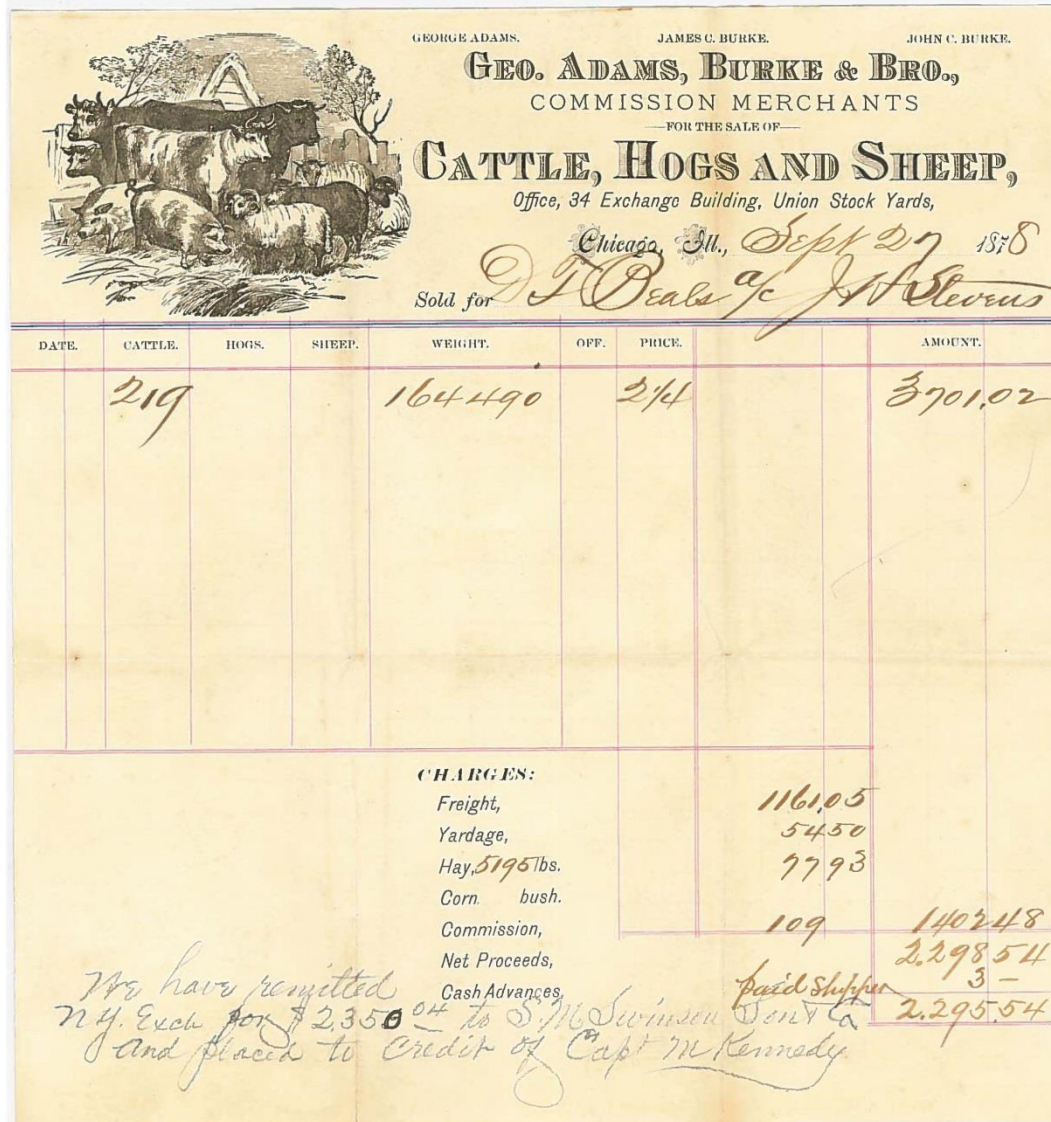 GEORGE ADAMS. JAMES C. BURKE. JOHN C. BURKE.
GEO. ADAMS, BURKE & BRO.,
COMMISSION MERCHANTS
—FOR THE SALE OF—
CATTLE, HOGS AND SHEEP,
Office, 34 Exchange Building, Union Stock Yards,
Chicago, Ill., Sept 27 1878
Sold for D T Beals a/c J W Stevens
DATE. CATTLE. HOGS. SHEEP. WEIGHT. OFF. PRICE. AMOUNT.
219 164490 2 1/4 3701.02
CHARGES:
Freight, 1161.05
Yardage, 54 50
Hay, 5195 lbs. 77 93
Corn. bush.
Commission, 109 1402 48
Net Proceeds, 2.298 54
Cash Advances, paid Shipper 3 —
2.295.54
We have remitted
N.Y. Exch for $2.350 04 to S. M Swinson Son & Co
and placed to credit of Capt M Kennedy